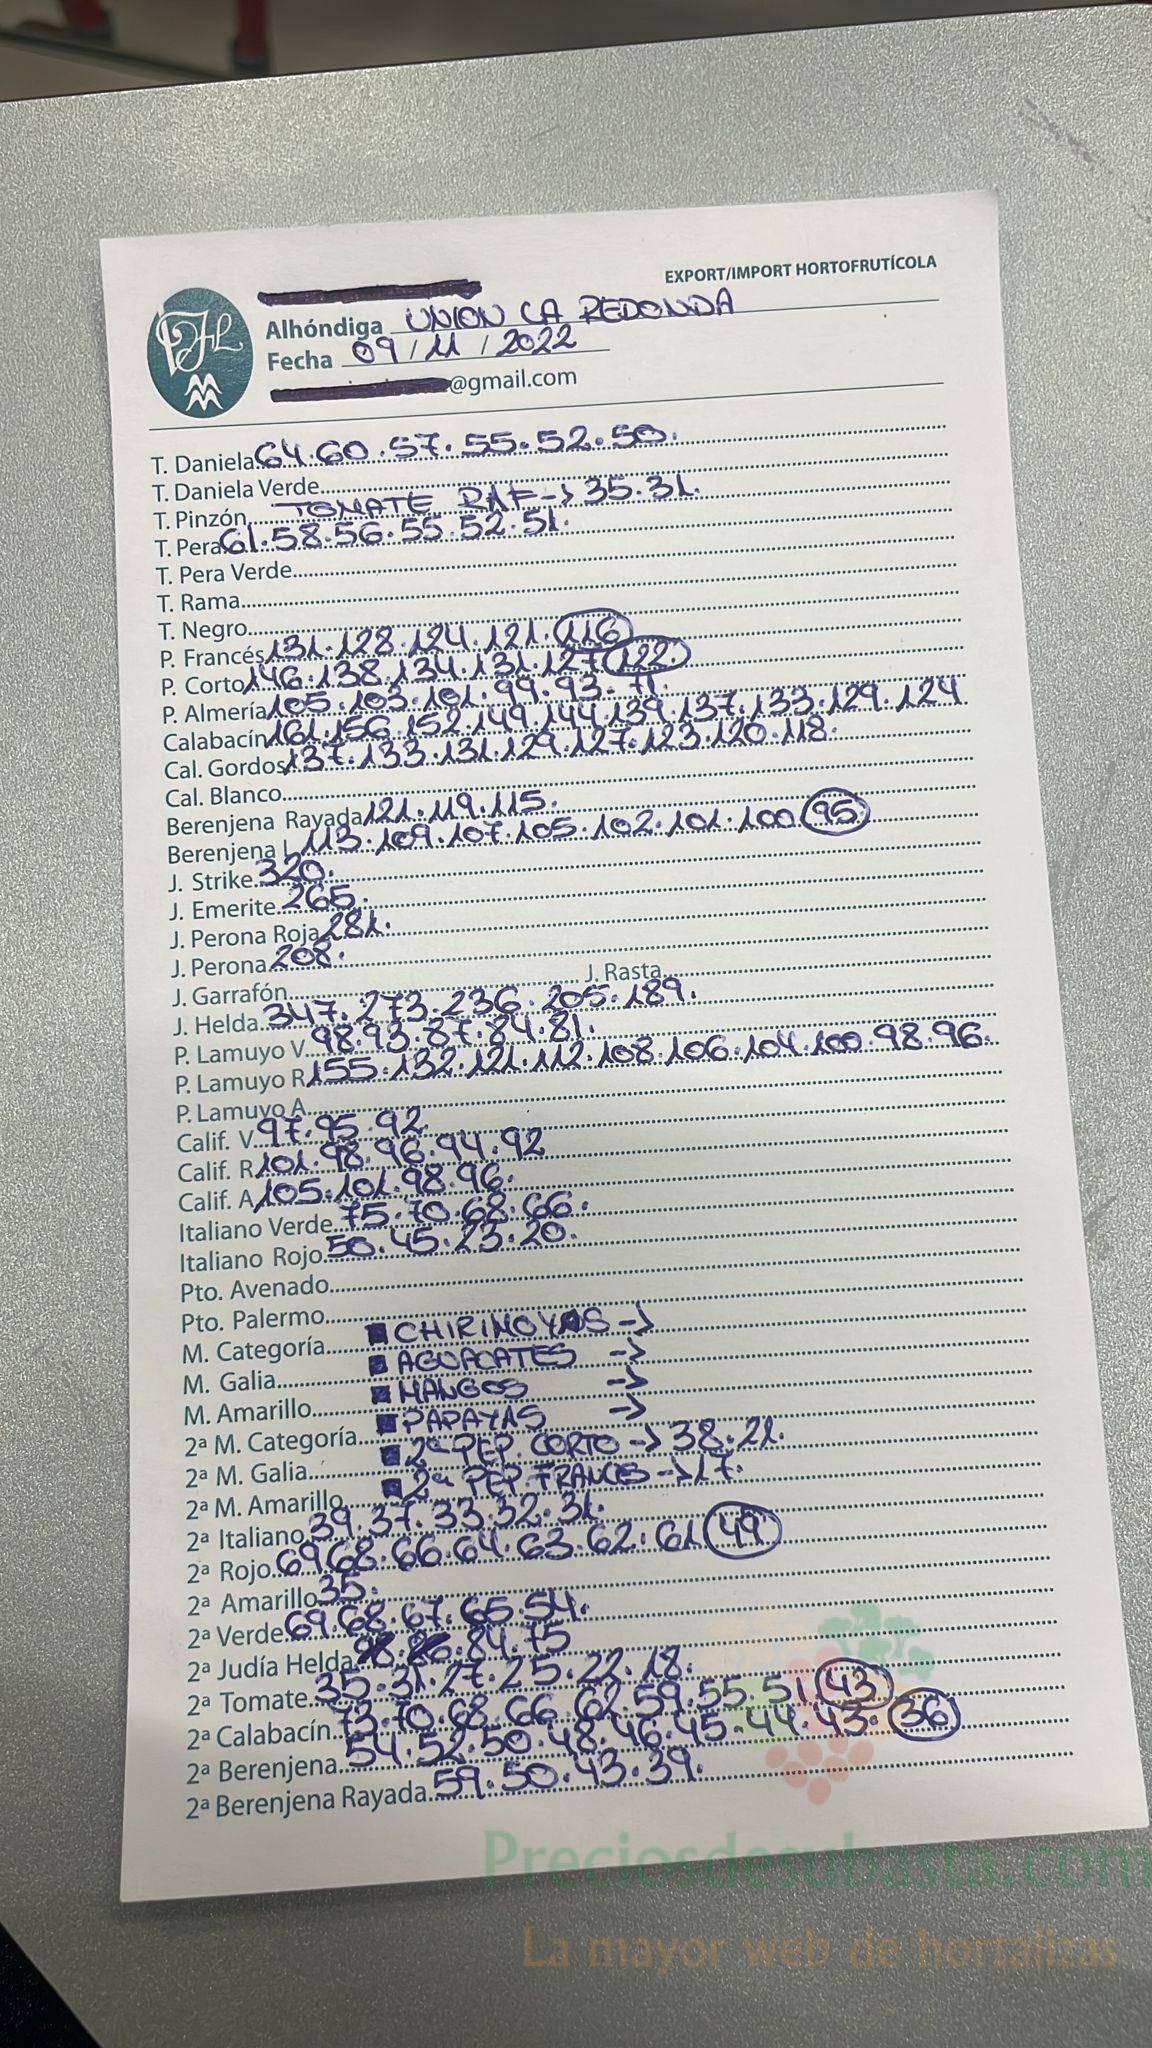 EXPORT/IMPORT HORTOFRUTÍCOLA
Alhóndiga UNION LA REDONDA
Fecha 09/11/2022
@gmail.com
T. Daniela 64.60.57.55.52.50.
T. Daniela Verde
T. Pinzón TOMATE RAF -> 35.31.
T. Pera 61.58.56.55.52.51.
T. Pera Verde
T. Rama
T. Negro
P. Francés 131.128.124.121.116
P. Corto 146.138.134.131.127.122.
P. Almería 105.103.101.99.93.71.
Calabacín 161.156.152.149.144.139.137.133.129.124
Cal. Gordos 137.133.131.129.127.123.120.118.
Cal. Blanco
Berenjena Rayada 121.119.115.
Berenjena L 113.109.107.105.102.101.100.95.
J. Strike 320.
J. Emerite 265.
J. Perona Roja 281.
J. Perona 208.
J. Garrafón J. Rasta
J. Helda 347.273.236.205.189.
P. Lamuyo V. 98.93.87.84.81.
P. Lamuyo R 155.132.121.112.108.106.104.100.98.96.
P. Lamuyo A
Calif. V. 97.95.92
Calif. R 101.98.96.94.92
Calif. A 105.101.98.96.
Italiano Verde 75.70.68.66.
Italiano Rojo 50.45.23.20.
Pto. Avenado
Pto. Palermo
M. Categoría ■ CHIRIMOYAS ->
M. Galia ■ AGUACATES ->
M. Amarillo ■ MANGOS ->
2ª M. Categoría ■ PAPAYAS ->
2ª M. Galia ■ 2ª PEP. CORTO -> 38.21.
2ª M. Amarillo ■ 2ª PEP. FRANCES -> 17.
2ª Italiano 39.37.33.32.31.
2ª Rojo 69.68.66.64.63.62.61.49
2ª Amarillo 35.
2ª Verde 69.68.67.65.54.
2ª Judía Helda 84.75
2ª Tomate 35.31.27.25.22.18.
2ª Calabacín 73.70.68.66.62.59.55.51.43
2ª Berenjena 54.52.50.48.46.45.44.43.36
2ª Berenjena Rayada 59.50.43.39.
Preciosdesubasta.com
La mayor web de hortalizas